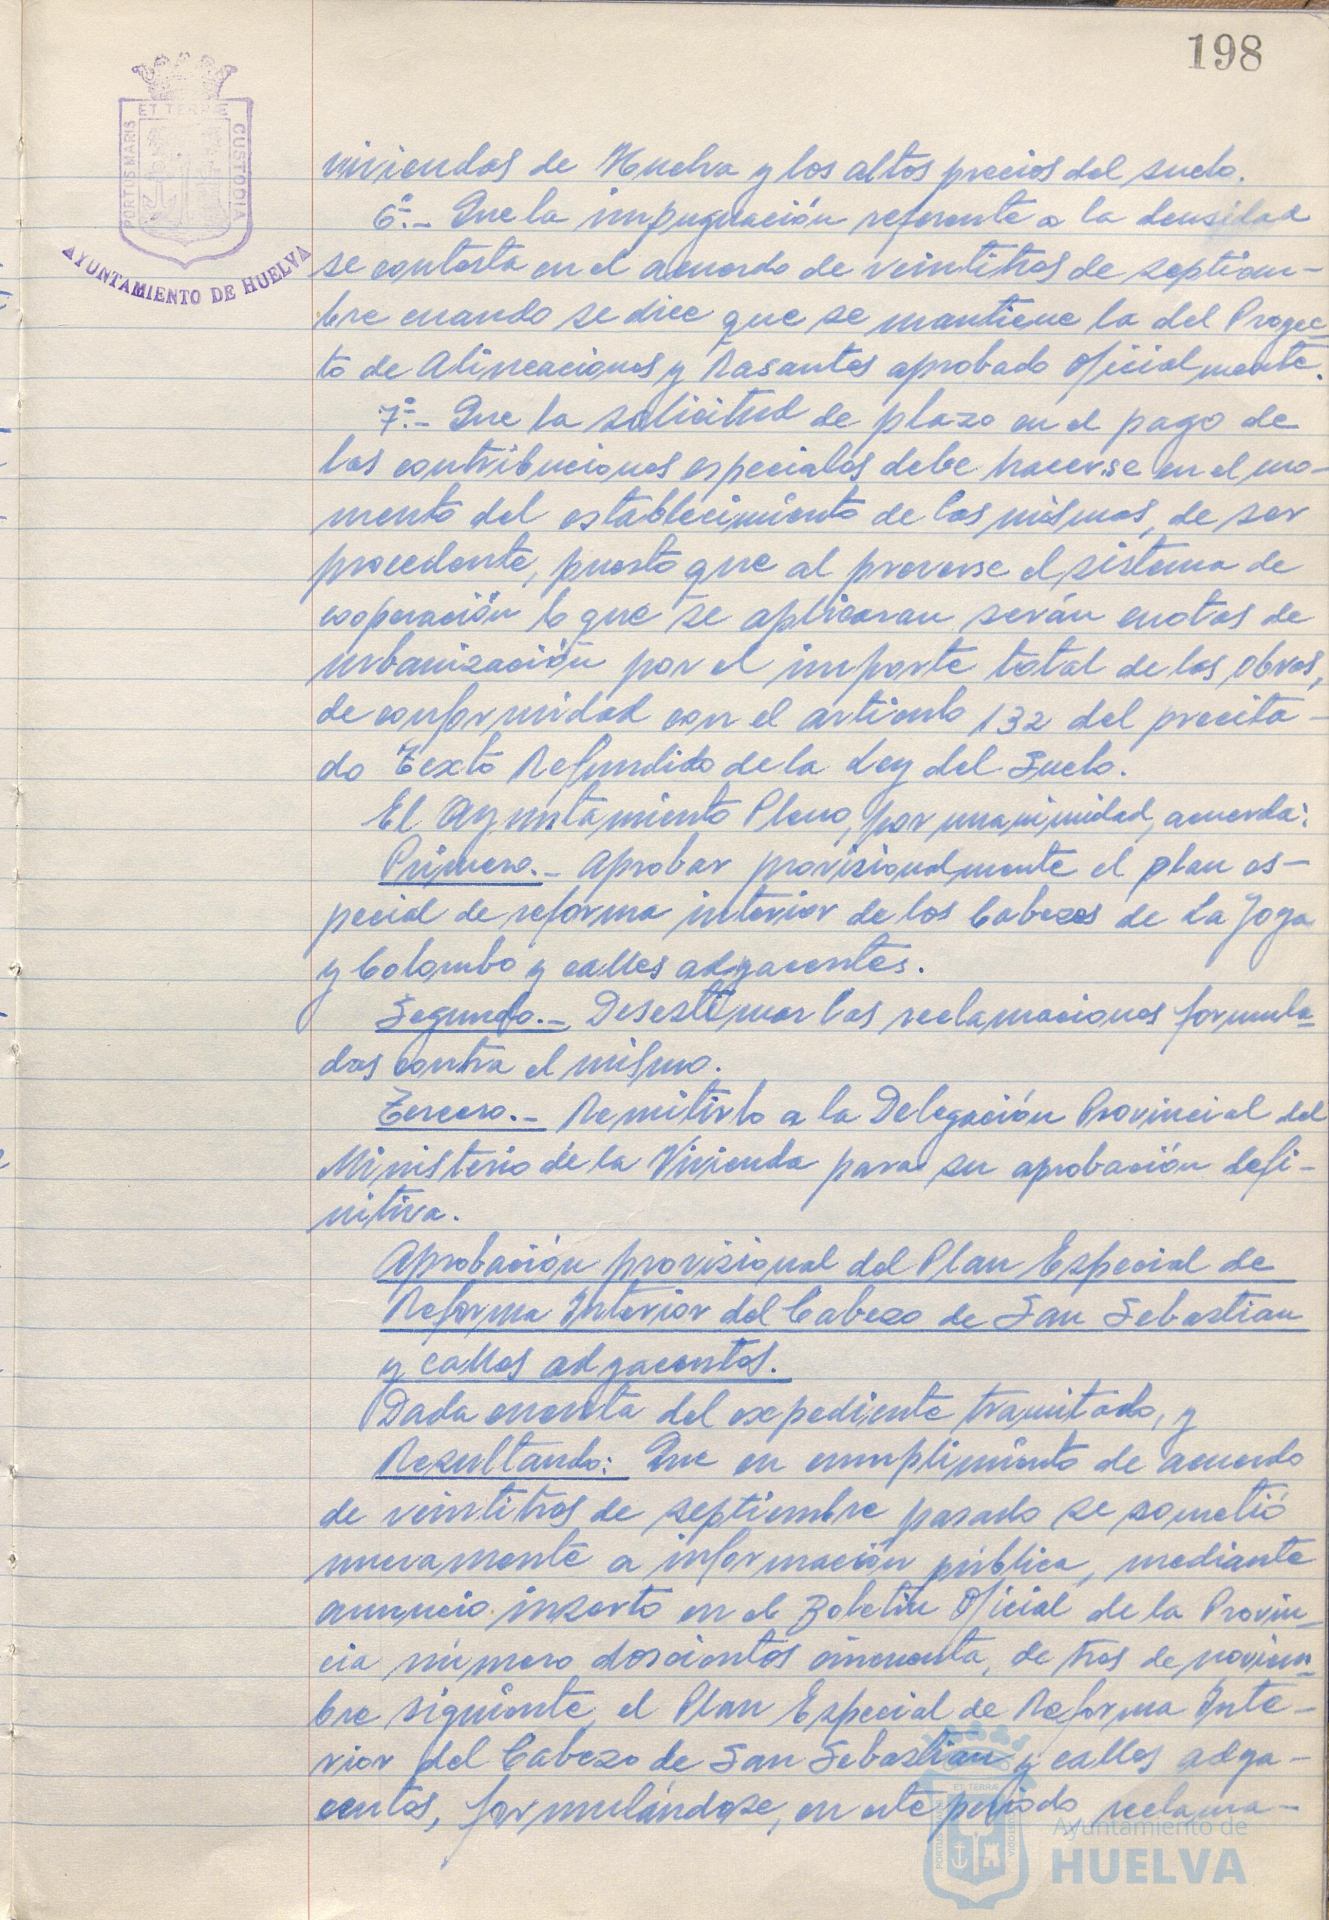 198
ET TERRAE
PORTUS MARIS
CUSTODIA
AYUNTAMIENTO DE HUELVA
viviendas de Huelva y los altos precios del suelo.
6º.- Que la impugnación referente a la densidad
se contesta en el acuerdo de veintitres de septiem-
bre cuando se dice que se mantiene la del Proyec-
to de Alineaciones y Rasantes aprobado oficialmente.
7º.- Que la solicitud de plazo en el pago de
las contribuciones especiales debe hacerse en el mo-
mento del establecimiento de las mismas, de ser
procedente, puesto que al preverse el sistema de
cooperación lo que se aplicaran serán cuotas de
urbanización por el importe total de las obras,
de conformidad con el articulo 132 del precita-
do Texto Refundido de la Ley del Suelo.
El Ayuntamiento Pleno, por unanimidad, acuerda:
Primero.- Aprobar provisionalmente el plan es-
pecial de reforma interior de los Cabezos de La Joya
y Colombo y calles adyacentes.
Segundo.- Desestimar las reclamaciones formula-
das contra el mismo.
Tercero.- Remitirlo a la Delegación Provincial del
Ministerio de la Vivienda para su aprobación defi-
nitiva.
Aprobación provisional del Plan Especial de
Reforma Interior del Cabezo de San Sebastian
y calles adyacentes.
Dada cuenta del expediente tramitado, y
Resultando: Que en cumplimiento de acuerdo
de veintitres de septiembre pasado se sometió
nuevamente a información pública, mediante
anuncio inserto en el Boletin Oficial de la Provin-
cia número doscientos cincuenta, de tres de noviem-
bre siguiente, el Plan Especial de Reforma Inte-
rior del Cabezo de San Sebastian y calles adya-
centes, formulándose, en este periodo reclama-
ET TERRAE
PORTUS MARIS
CUSTODIA
Ayuntamiento de
HUELVA